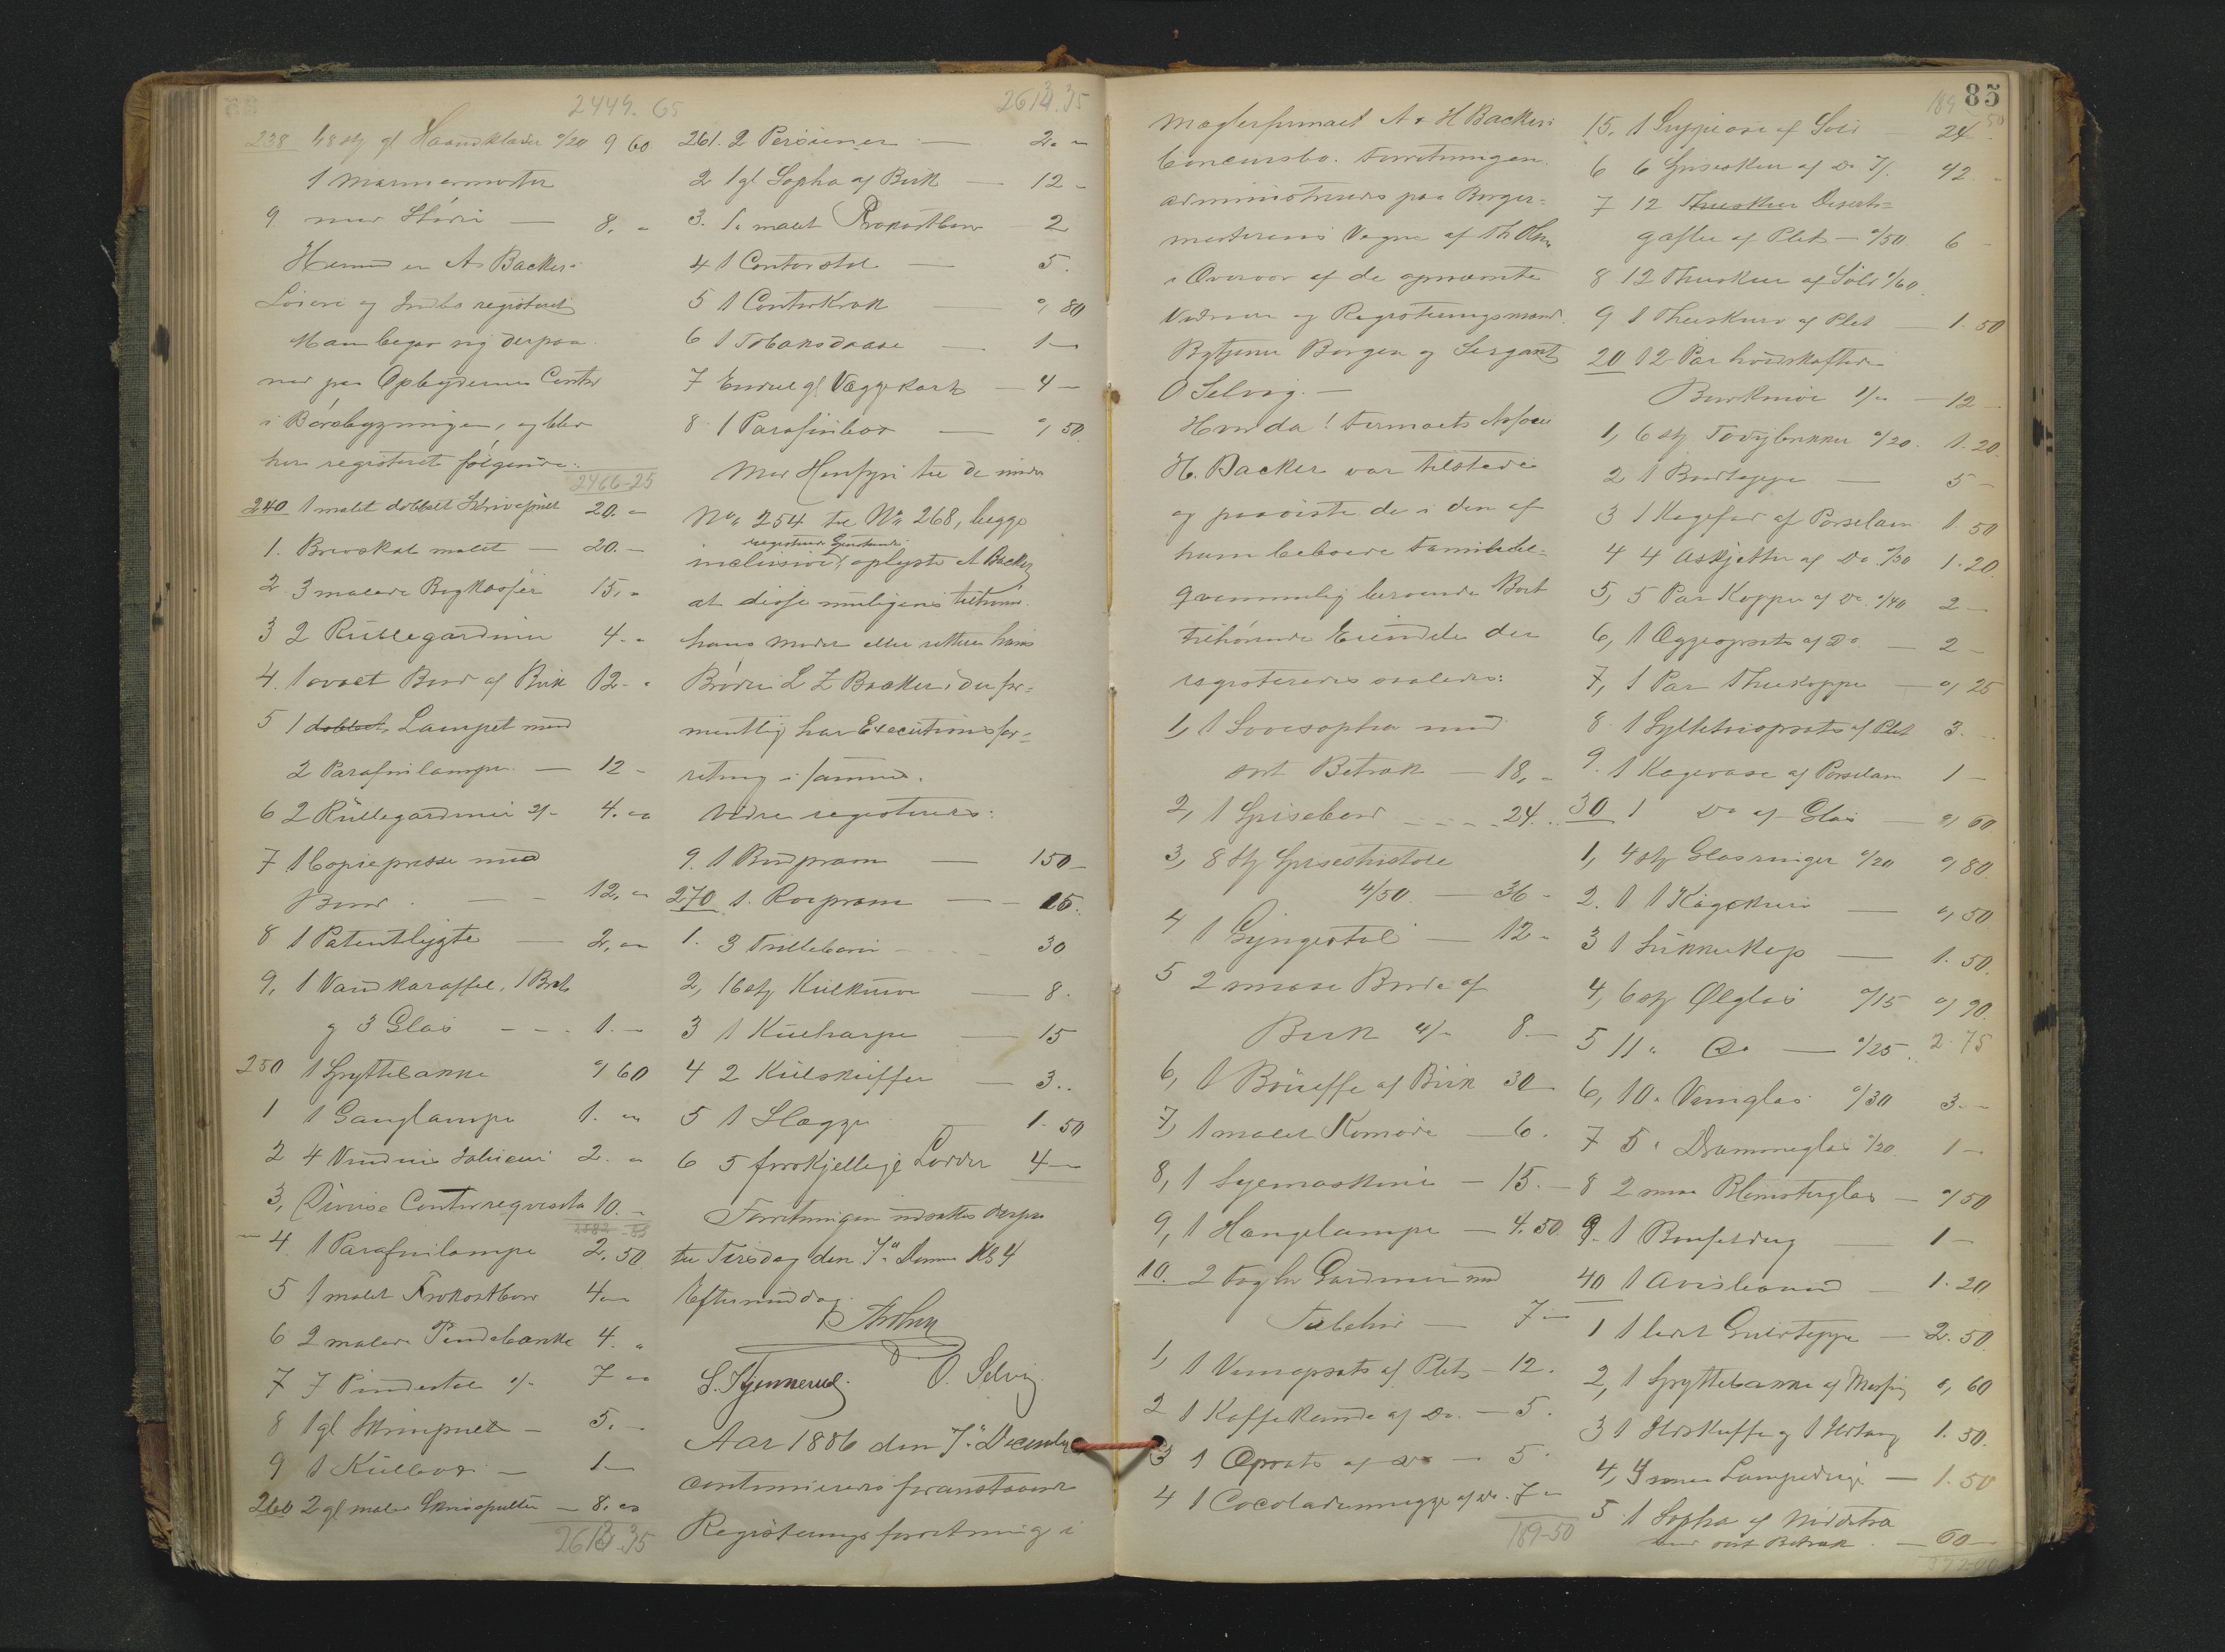 2449. 65
238 48 stk gl Haandklæder a/20 9 60
1 Marmormorter
9 med Støder — 8. "
Hermed er A. Backers
Løsøre og Indbo registeret
Man begav sig derpaa
ned paa Opbyderens Contor
i Børsbygningen, og blev
her registeret følgende:
2466-25
240 1 malet dobbelt Skrivepult 20. "
1. Brevskab malet — 20. —
2 3 malede Bogkasser 15. "
3 2 Rullegardiner 4. "
4. 1 ovalt Bord af Birk 12. "
5 1 dobbelt Lampet med
2 Parafinlamper — 12 —
6 2 Rullegardiner 2/- 4. "
7 1 Copiepresse med
Bord — 12. "
8 1 Patentlygte — 2. "
9, 1 Vandkaraffel, 1 Bret
og 3 Glas — 1. —
250 1 Spyttebakke " 60
1 1 Ganglampe 1. "
2 4 Vindues Jalusier 2. "
3, Diverse Contorrequisita 10. —
4. 1 Parafinlampe 2. 50
5 1 malet Frokostbord 4 —
6 2 malede Pindebænke 4. "
7 7 Pindestole 1/- 7 "
8 1 gl Skrivepult — 5. —
9 1 Kulbox — 1 —
260 2 gl malede Skrivepulter — 8. "
2613.35
2613.35
261. 2 Persienner — 2. "
2 1 gl Sopha af Birk — 12 —
3. 1. malet Frokostbord — 2
4 1 Contorstol — 5.
5 1 Contorkrak — " 80
6 1 Tobaksdaase — 1 —
7 Endeel gl Vægkart — 4 —
8 1 Parafinbox — " 50
Med Hensyn til de under
No. 254 til No. 268, begge
registrerede Gjenstande
inclusive, oplyste A Backer
at disse muligens tilhører
hans Moder eller rettere hans
Broder L Z Backer, der for-
mentlig har Executionsfor-
retning i samme.
Videre registeredes:
9. 1 Budpram — 150 —
270 1. Roepram — 15.
1. 3 Trillebører — 30
2, 16 stk Kulkurve — 8.
3 1 Kulharpe — 15
4 2 Kulskuffer — 3..
5 1 Slægge — 1. 50
6 5 forskjellige Lodder 4 —
Forretningen udsattes derpaa
til Tirsdag den 7de Dennes Kl 4
Eftermiddag.
S. Stjernerud. O. Selvig.
Aar 1886 den 7de December
continueredes foranstaaende
Registreringsforretning i
85
189 50
Mæglerfirmaet A & H Backers
Concursbo. Forretningen
administreredes paa Borger-
mesterens Vegne af Th Olsen
i Overvær af de opnævnte
Vidner og Registreringsmænd
Bytjener Borgen og Sergant
O Selvig. —
Hvorda! Firmaets Associe
H. Backer var tilstede
og paaviste de i den af
ham beboede Familiele-
gvemmelig beroende Boet
tilhørende Eiendele der
registeredes saaledes:
1, 1 Sovesopha med
sort Betræk — 18, "
2, 1 Spisebord — 24..
3, 8 stk Spisestuestole
4/50 — 36 —
4 1 Gyngestol — 12 "
5 2 smaae Borde af
Birk 4/- 8 —
6, 1 Bouffe af Birk 30 —
7, 1 malet Komode — 6.
8, 1 Syemaskine — 15. —
9, 1 Hængelampe — 4. 50
10. 2 Fag hv Gardiner med
Tilbehør — 7 —
1, 1 Vinopsats af Plet — 12.
2 1 Kaffekande af Do. — 5.
3 1 Opsats af Do — 5.
4 1 Cocolademugge af Do. 7 "
189-50
15. 1 Suppeøse af Sølv — 24
6 6 Spiseskeer af Do 7/. 42. "
7 12 Theskeer Desert-
gafler af Plet — a/50 6 —
8 12 Theskeer af Sølv a/60
9 1 Theskurv af Plet — 1. 50
20 12 Par hvidskaftede
Bordknive 1/" — 12 —
1, 6 stk Todybrikker a/20. 1. 20
2 1 Bordteppe — 5 —
3 1 Kagefad af Porselain 1. 50
4 4 Askjetter af Do. a/30 1. 20.
5, 5 Par Kopper af Do. a/40 2 —
6, 1 Æggeopsats af Do. — 2 —
7, 1 Par Thekopper — " 25
8 1 Syltetøiopsats af Plet 3. —
9. 1 Kagevase af Porselain 1 —
30 1 Do af Glas — " 60
1, 4 stk Glasringer a/20 " 80.
2. 1 1 Kagekurv — " 50
3 1 Sukkerkop — 1. 50.
4, 6 stk Ølglas a/15 " 90.
5 11 " Do — a/25. 2. 75
6, 10 " Vinglas a/30 3. —
7 5 " Drammeglas a/20. 1 —
8 2 smaa Blomsterglas — " 50
9. 1 Bordstøvdug — 1 —
40 1 Avisbaand — 1. 20
1 1 lidet Gulvteppe — 2. 50
2, 1 Spyttebakke af Messing " 60
3 1 Ildskuffe og 1 Ildtang 1. 50.
4, 3 smaa Lampeduge — 1. 50
5. 1 Sopha af Nøddetræ
med sort Betræk. — 60 —